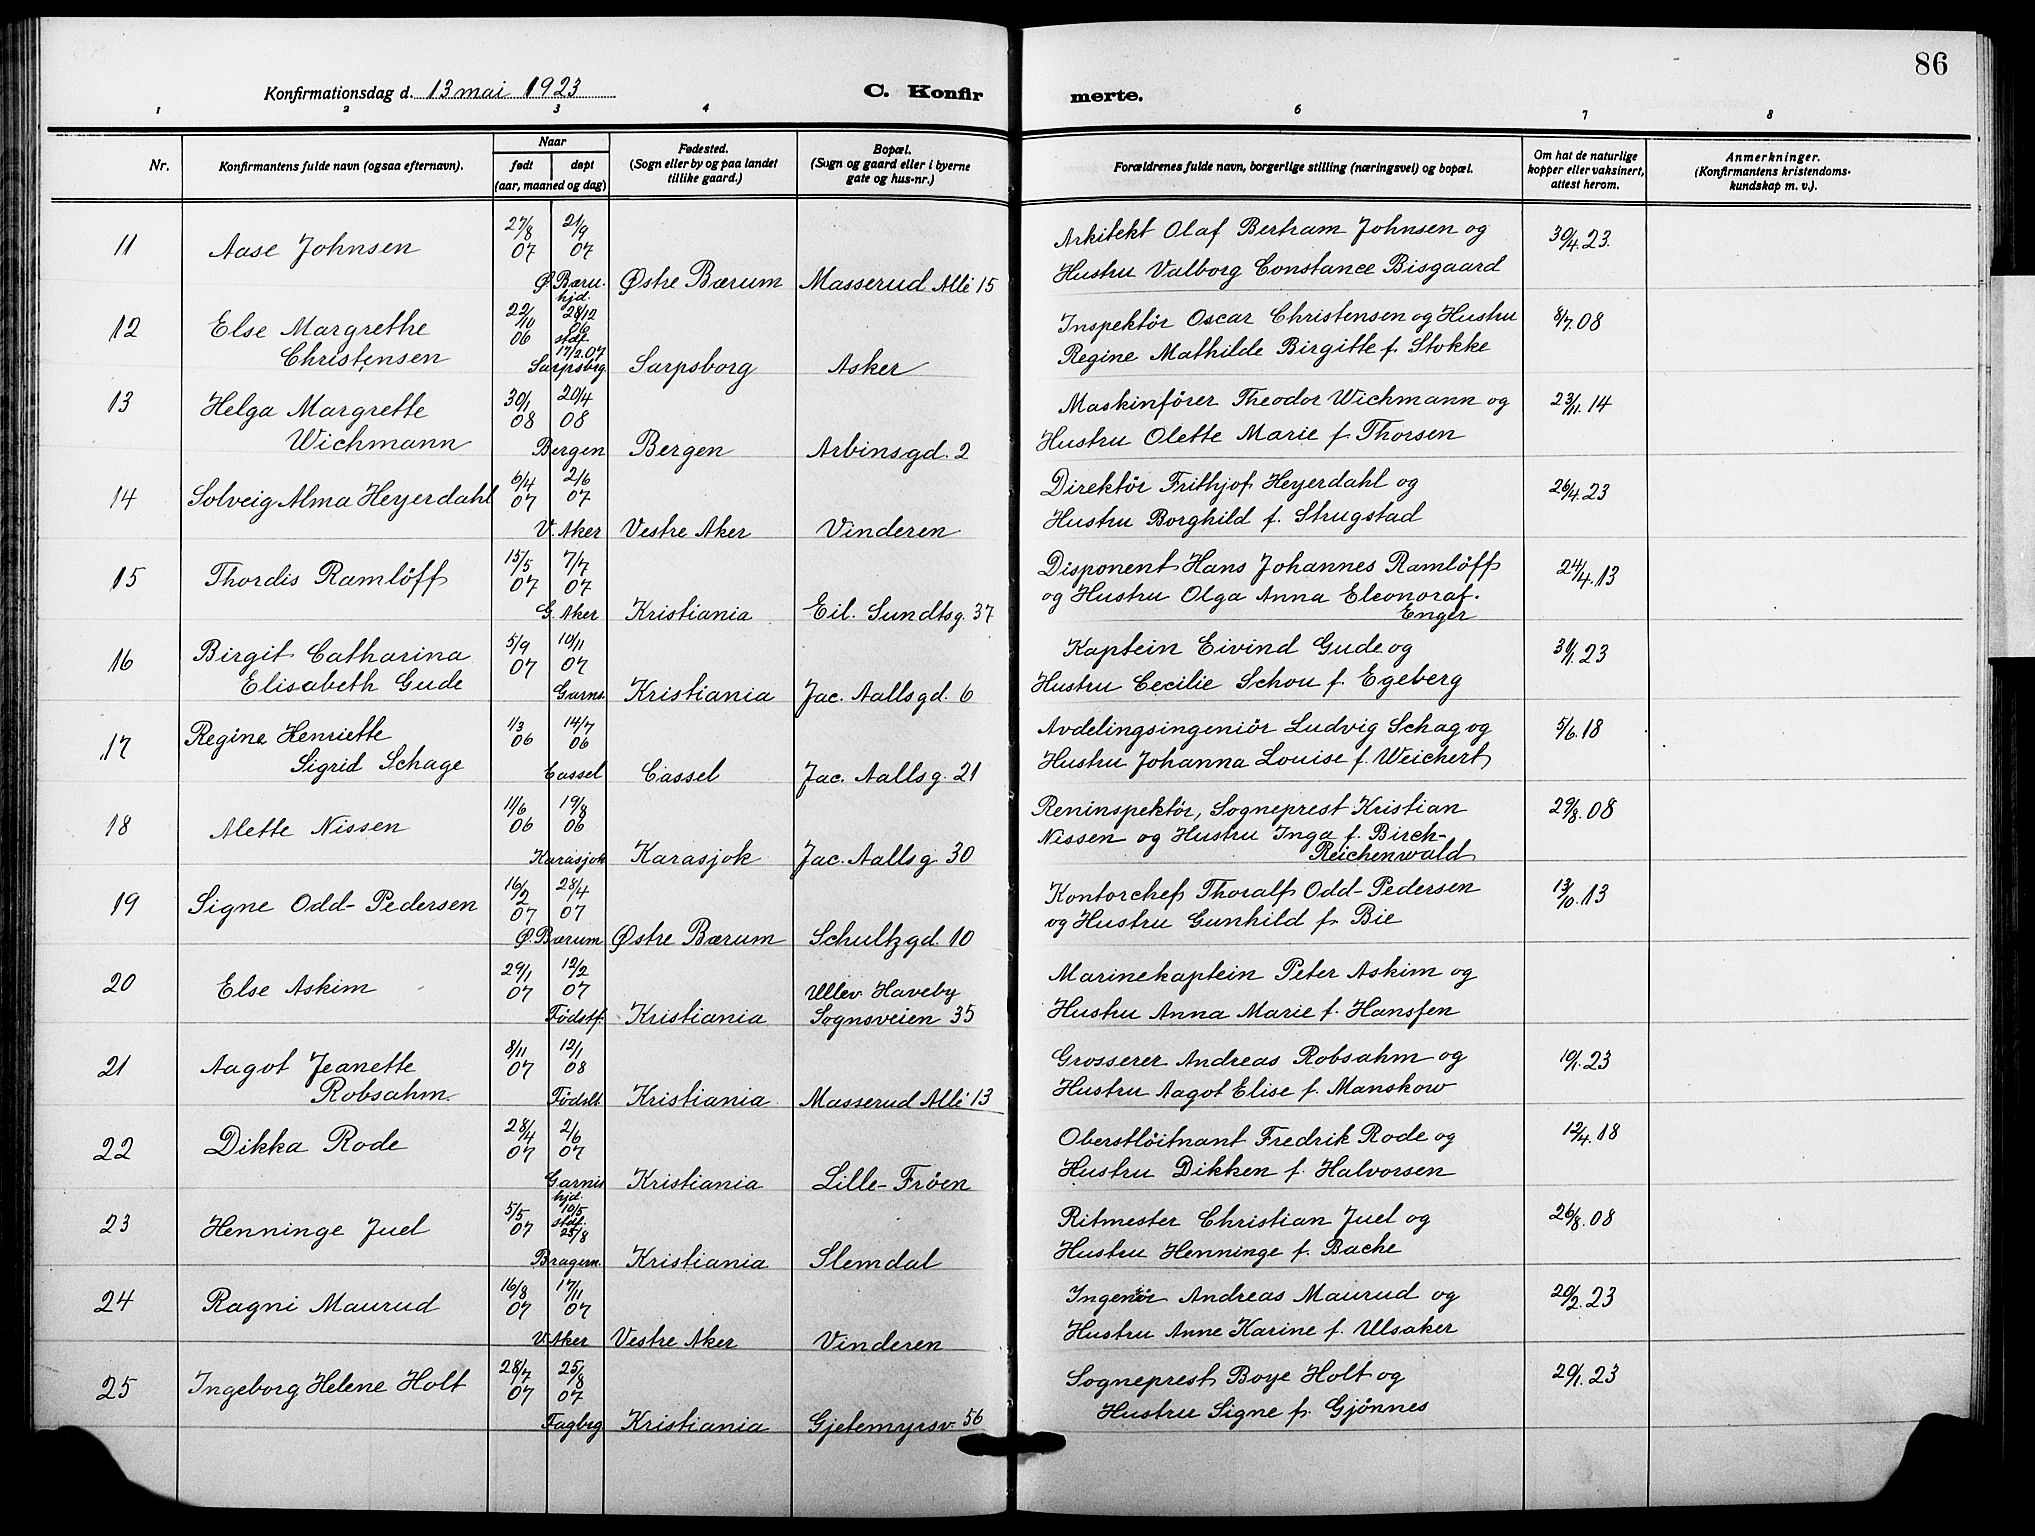 86
Konfirmationsdag d. 13 mai 1923
C. Konfir
merte.
1 2 3 4 6 7 8
Nr.
Konfirmantens fulde navn (ogsaa efternavn).
Naar
født døpt
(aar, maaned og dag)
Fødested.
(Sogn eller by og paa landet
tillike gaard.)
Bopæl.
(Sogn og gaard eller i byerne
gate og hus-nr.)
Forældrenes fulde navn, borgerlige stilling (næringsvei) og bopæl.
Om hat de naturlige
kopper eller vaksinert,
attest herom.
Anmerkninger.
(Konfirmantens kristendoms-
kundskap m. v.).
27/8 21/9 Arkitekt Olaf Bertram Johnsen og
11 Aase Johnsen 07 07 30/4.23.
Ø. Bæru. Østre Bærum Masserud Allé 15 Hustru Valborg Constance Bisgaard
hjd.
22/10 28/12
12 Else Margrethe 06 06 Inspektör Oscar Christensen og Hustru 8/7.08
stdf.
Christensen 17/2.07 Regine Mathilde Birgitte f. Stokke
Sarpsborg Sarpsborg Asker
13 Helga Margrette 30/1 20/4 Maskinförer Theodor Wichmann og 23/11.14
08 08
Wichmann Hustru Olette Marie f. Thorsen
Bergen Bergen Arbinsgd. 2
6/4 2/6 Direktör Frithjof Heyerdahl og
14 Solveig Alma Heyerdahl 07 07 26/4.23
V. Aker Vestre Aker Vinderen Hustru Borghild f. Strugstad
15/5 7/7 Disponent Hans Johannes Ramlöff
15 Thordis Ramlöff 07 07 24/4.13
og Hustru Olga Anna Eleonora f.
G. Aker Kristiania Eil. Sundtsg. 37 Enger
16 Birgit Catharina 5/9 10/11 Kaptein Eivind Gude og 23
07 07
Elisabeth Gude Garns. Kristiania Jac. Aallsgd. 6 Hustru Cecilie Schou f. Egeberg
17 Regine Henriette 1/3 14/7 Avdelingsingeniör Ludvig Schag og 5/6.18
06 06
Sigrid Schage Hustru Johanna Louise f. Weichert
Cassel Cassel Jac. Aallsg. 21
11/6 19/8 Reninspektör, Sogneprest Kristian
18 Alette Nissen 06 06 29/8.08
Nissen og Hustru Inga f. Birch-
Karasjok Karasjok Jac. Aallsg. 30 Reichenwald
16/2 28/4 Kontorchef Thoralf Odd-Pedersen
19 Signe Odd-Pedersen 07 07 13
og Hustru Gunhild f. Bie
Ø. Bærum Østre Bærum Schultzgd. 10
29/1 12/2 Marinekaptein Peter Askim og
20 Else Askim 07 07 Ullev. Haveby
Födstf. Kristiania Sognsveien 35 Hustru Anna Marie f. Hansfen
21 Aagot Jeanette 8/11 12/1 Grosserer Andreas Robsahm og 23
07 08
Robsahm. Hustru Aagot Elise f. Manskow
Födslt. Kristiania Masserud Allé 13
28/4 2/6 Oberstlöitnant Fredrik Rode og 12/4.18
22 Dikka Rode 07 07
Garnis Kristiania Lille-Fröen Hustru Dikken f. Halvorsen
hjd.
5/5 10/5
23 Henninge Juel 07 stdf. Ritmester Christian Juel og 26/8.08
25/8
Bragern. Kristiania Slemdal Hustru Henninge f. Bache
16/8 17/11 Ingeniör Andreas Maurud og
24 Ragni Maurud 07 07 20/2.23
V. Aker Vestre Aker Vinderen Hustru Anne Karine f. Ulsaker
28/7 25/8 Sogneprest Boye Holt og
25 Ingeborg Helene Holt 07 07 20/1.23
Hustru Signe f. Gjönnes
Fagbrg Kristiania Gjetemyrsv. 56